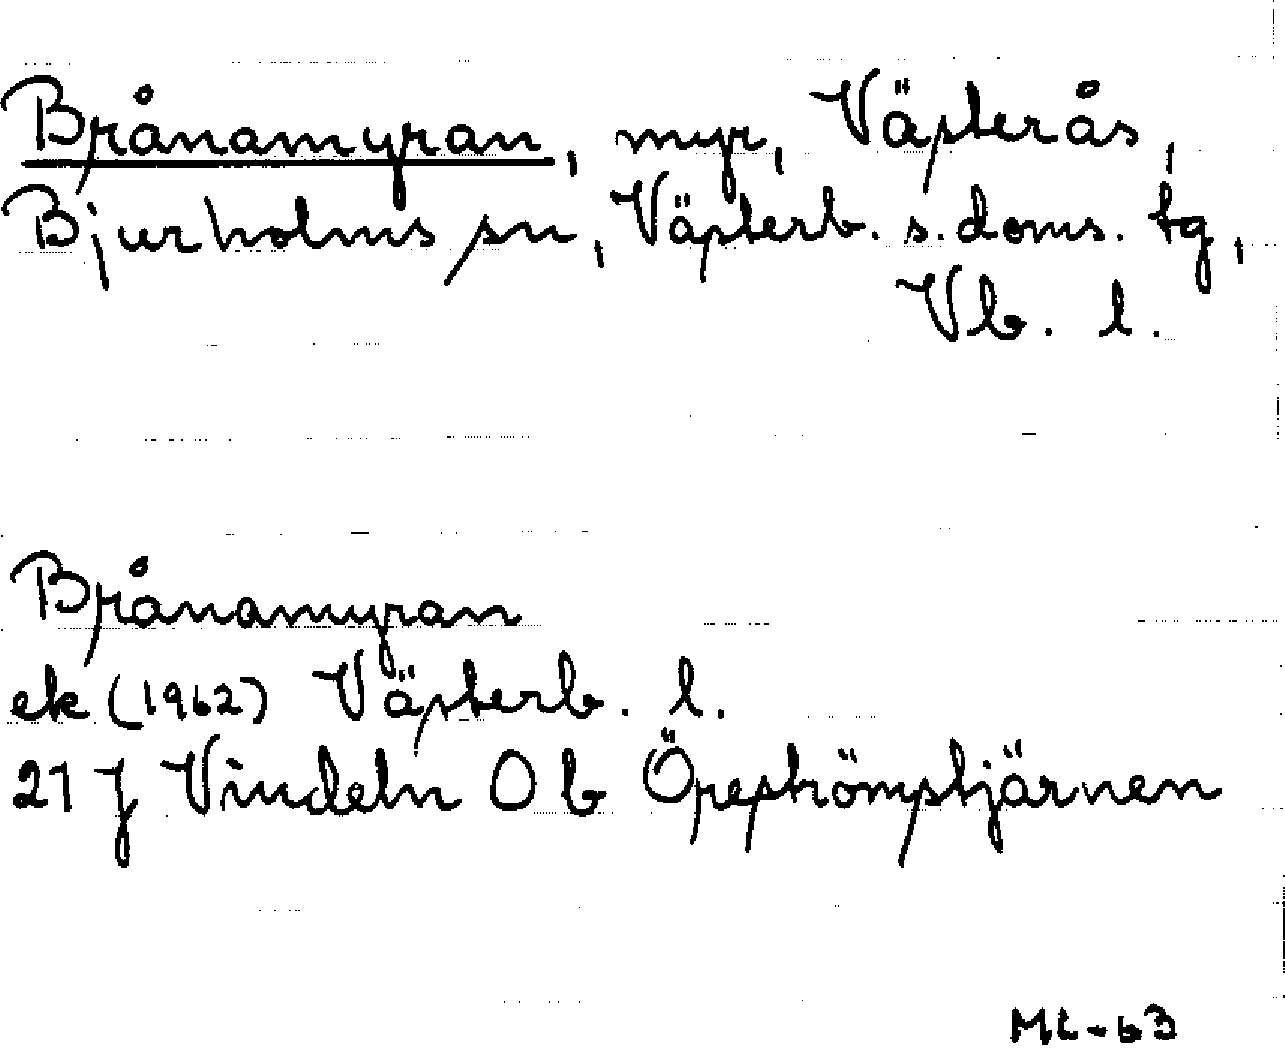 Brånamyran, myr, Västerås,
Bjurholms sn, Västerb. s. doms. tg,
Vb. l.
Brånamyran
ek (1962) Västerb. l.
21 J Vindeln 0 b Öreströmstjärnen
ML-63